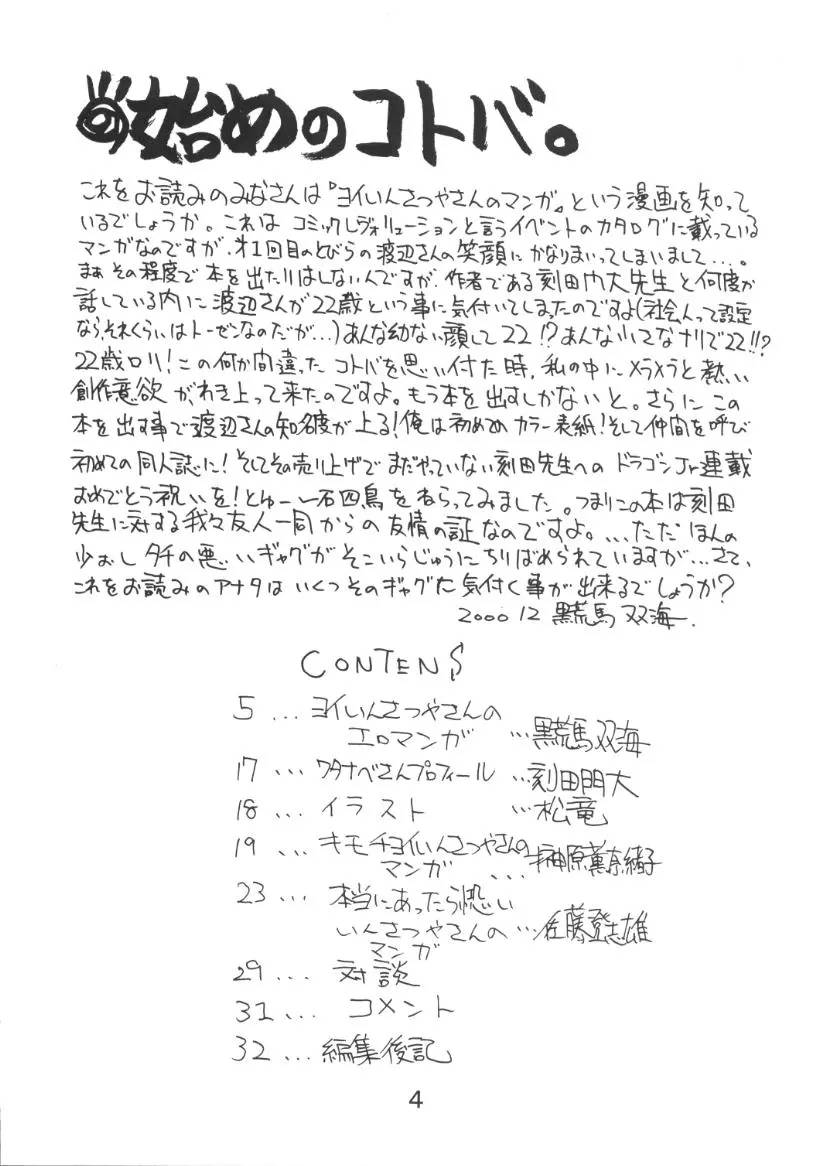 始めのコトバ。
これをお読みのみなさんは『ヨイいんさつやさんのマンガ』という漫画を知って
いるでしょうか。これはコミックレヴォリューションと言うイベントのカタログに載っている
マンガなのですが、オ1回目のとびらの渡辺さんの笑顔にかなりまいってしまいまして…。
まぁその程度で本を出たりはしないんですが、作者である刻田門大先生と何度か
話している内に渡辺さんが22歳という事に気付いてしまったのですよ(社会人って設定
なら、それくらいはトーゼンなのだが…)あんな幼ない顔して22!?あんな小さなナリで22!!?
22歳ロリ!この何か間違ったコトバを思い付た時、私の中にメラメラと熱い
創作意欲がわき上って来たのですよ。もう本を出すしかないと。さらにこの
本を出す事で渡辺さんの知名度が上る!俺は初めてのカラー表紙!そして仲間を呼び
初めての同人誌に!そしてその売り上げでまだやっていない刻田先生へのドラゴンJr連載
おめでとう祝いを!とゆー一石四鳥をねらってみました。つまりこの本は刻田
先生に対する我々友人一同からの友情の証なのですよ。…ただほんの
少おしタチの悪いギャグがそこいらじゅうにちりばめられていますが…さて、
これをお読みのアナタはいくつそのギャグた気付く事が出来るでしょうか?
2000 12 黒荒馬双海.
CONTENS
5 ... ヨイいんさつやさんの
エロマンガ …黒荒馬双海
17 ... ワタナベさんプロフィール …刻田門大
18 ... イラスト …松竜
19 ... キモチヨイいんさつやさんの
マンガ …榊原薫奈緒子
23 ... 本当にあったら恐い
いんさつやさんの …佐藤登志雄
マンガ
29 ... 対談
31 ... コメント
32 ... 編集後記
4